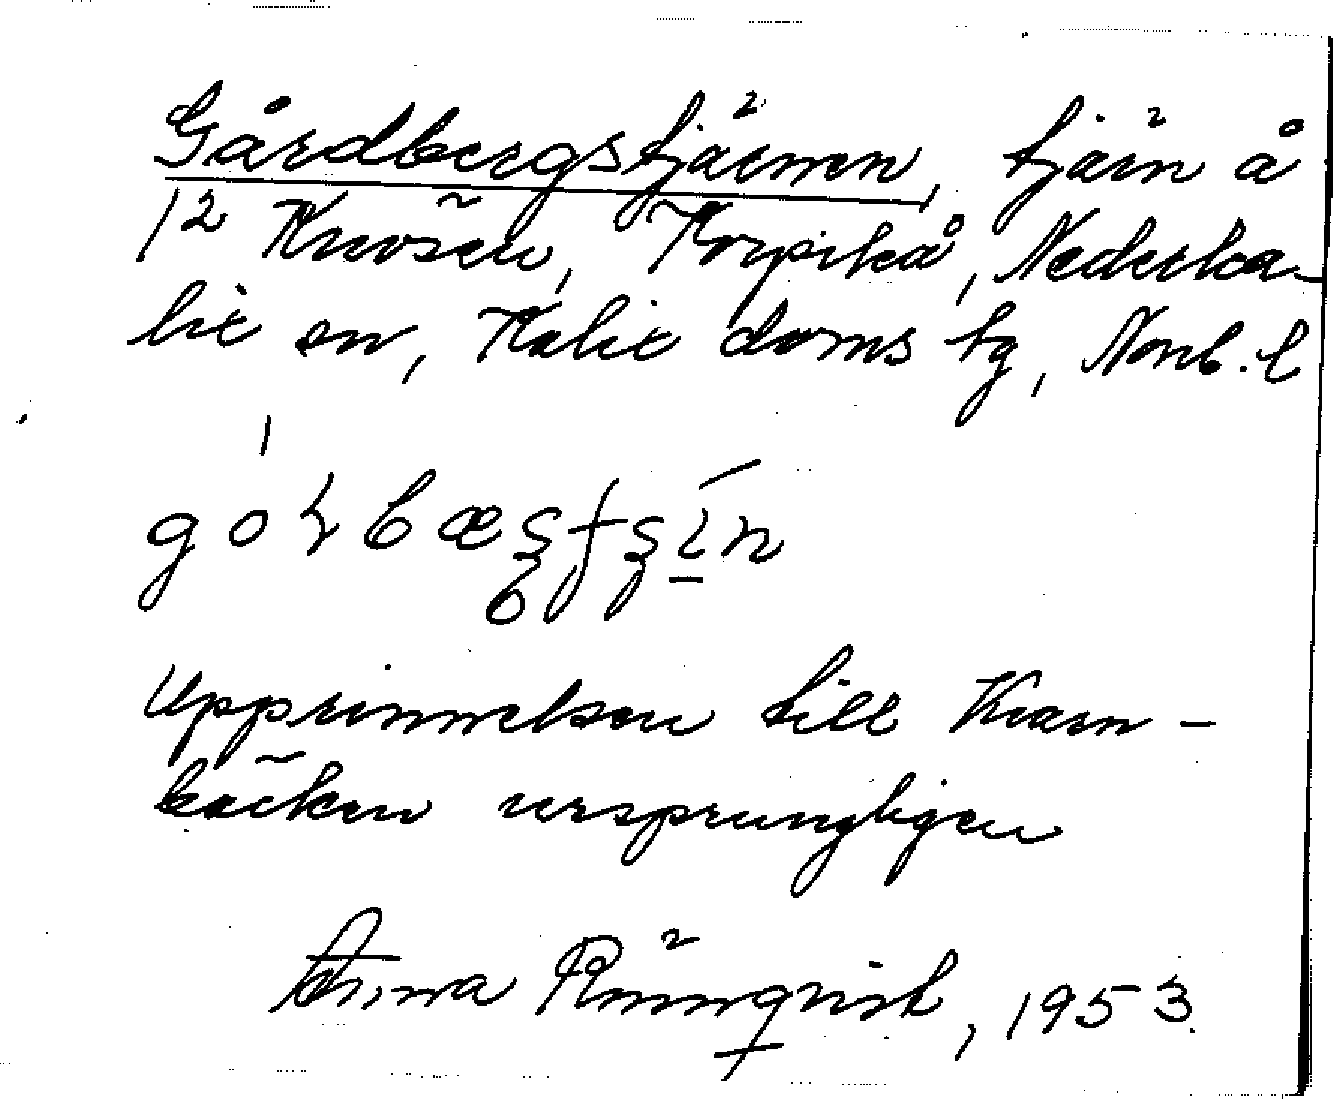 Gårdbergstjärnen, tjärn å
1² Knösen, Korpikå, Nederka-
lix sn, Kalix doms tg, Norrb. l
Upprinnelsen till Kvarn-
bäcken ursprungligen
Anna Rönnqvist, 1953